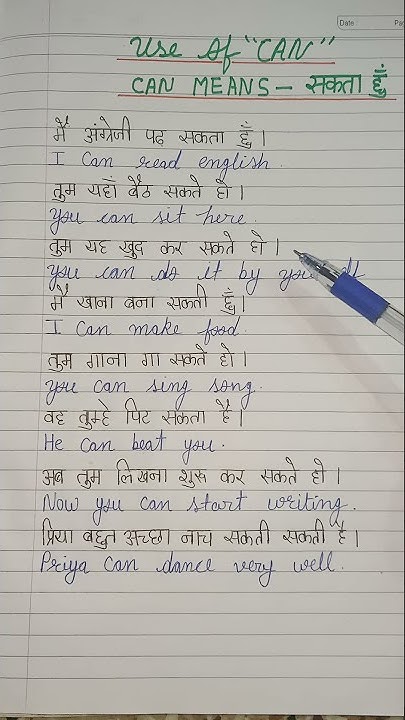 Date
Pa
Use of "CAN"
CAN MEANS - सकता हूँ
मैं अंग्रेजी पढ़ सकता हूँ।
I Can read english.
तुम यहाँ बैठ सकते हो।
you can sit here.
तुम यह खुद कर सकते हो।
you can do it by
मैं खाना बना सकती हूँ।
I Can make food.
तुम गाना गा सकते हो।
you can sing song.
वह तुम्हे पिट सकता है।
He can beat you.
अब तुम लिखना शुरू कर सकते हो।
Now you can start writing.
प्रिया बहुत अच्छा नाच सकती सकती है।
Priya can dance very well.